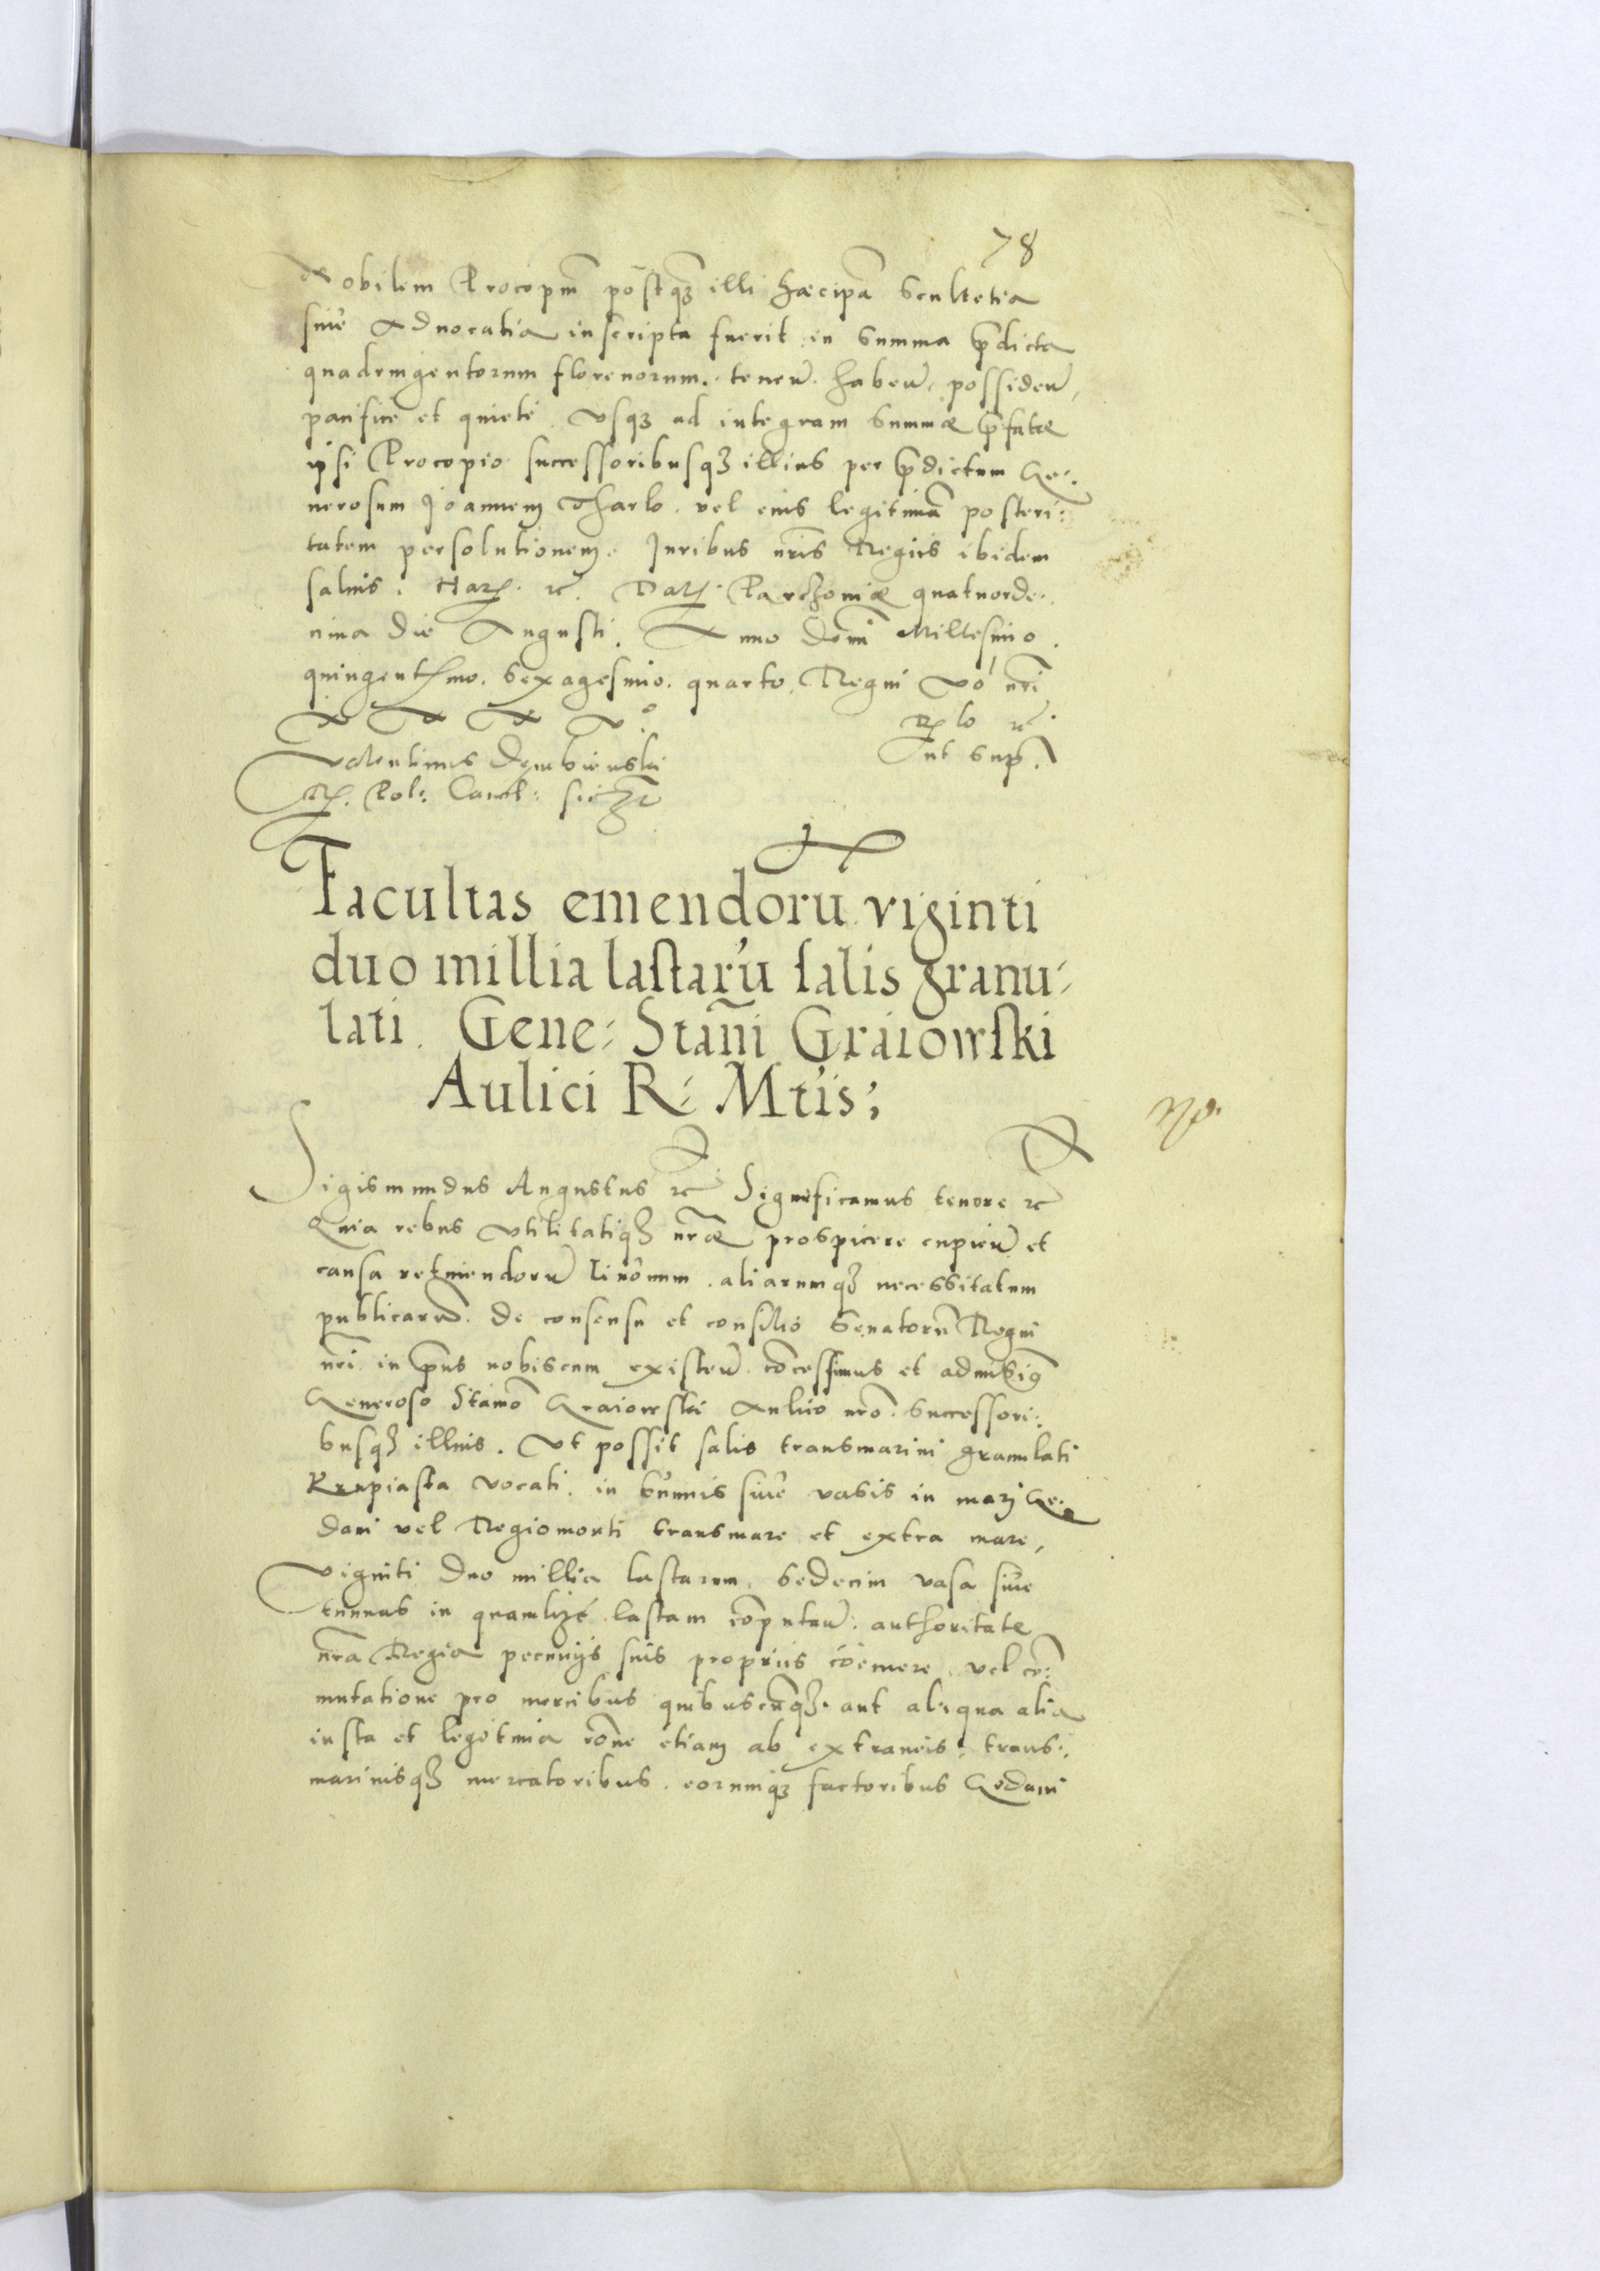 78
Nobilem Procopiũ põstqꝫ illi hæc ipã Scultetia
siue Aduocatia inscripta fuerit in Summa p̃dicta
quadringentorum florenorum. teneñ. habeñ. possideñ,
pacifice et quiete. Vsqꝫ ad integram Summæ p̃fatæ
ipsi Procopio successoribusqꝫ illius per p̃dictum Ge:
nerosum Joannem Tharlo. vel eius legitimã posteri:
tatem persolutionem. Juribus nr̃is Regiis ibidem
saluis. Harꝫ. ꝛc. Datꝫ. Parczouiæ quatuorde:
cima die Augusti. Anno Domĩ Millesimo.
quingentesimo. Sexagesimo. quarto. Regni vo nr̃i
XXXV.º
Valentinus Dembienski
R. Pol: Canc: ssꝛc
Rlo ꝛc.
ut sup.
Facultas emendorũ viginti
duo millia lastarũ salis granu⸗
lati. Gene: Stañi Graiowski
Aulici R: Mtis;
Sigismundus Augustus ꝛc Significamus tenore ꝛc
Quia rebus Vtilitatiqꝫ nr̃æ prospicere cupieñ et
causa retinendorũ Liuonum. aliarumqꝫ necessitatum
publicarũ. De consensu et consilio Senatorũ Regni
nr̃i. in p̃ns nobiscum existeñ. cõcessimus et admisimꝰ
Generoso Stanõ Graiowski Aulico nr̃o. Successori:
busqꝫ illius. Vt possit salis transmarini granulati
Krupiasta vocati. in tunnis siue vasis in mari Ge:
dani vel Regiomonti transmare et extra mare,
Viginti Duo millia lastarum, Sedecim vasa siue
tunnas in quamlibꝫ lastam cõputañ. authoritate
nr̃a Regia pecuniis suis propriis coemere. vel co:
mutatione pro mercibus quibuscũqꝫ. aut aliqua alia
iusta et legitima rõne etiam ab extraneis, trans:
marinisqꝫ mercatoribus. eorumqꝫ factoribus Gedani